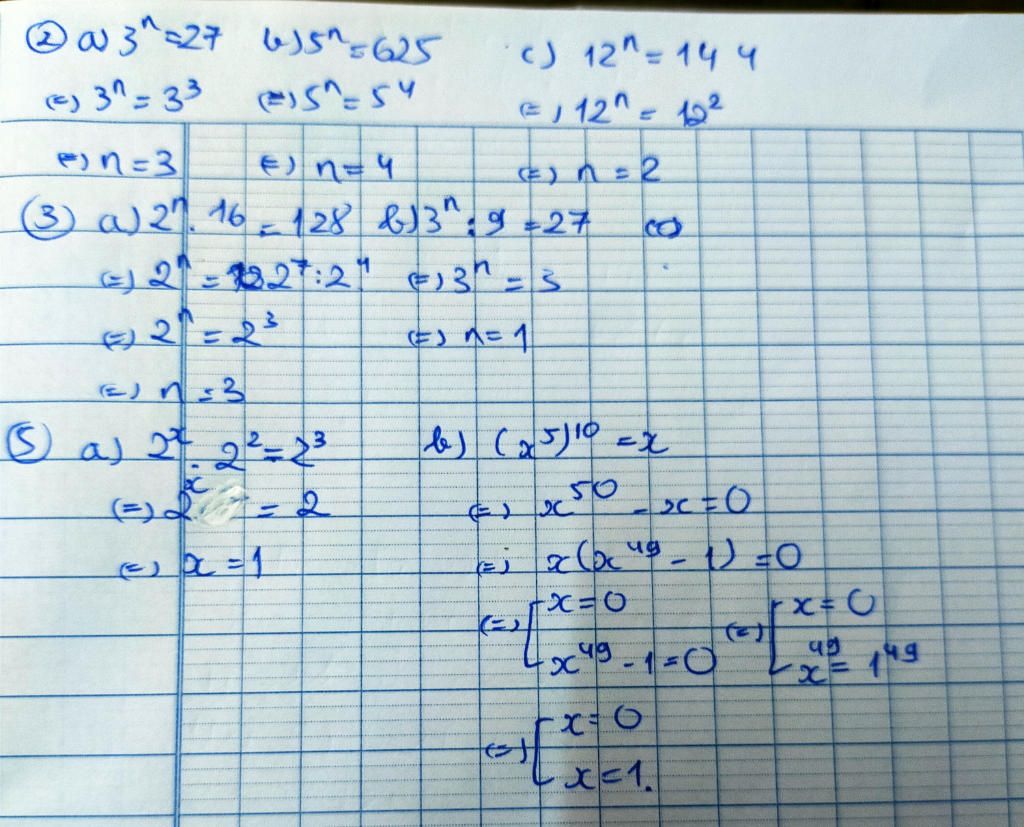 ② a) 3ⁿ = 27 b) 5ⁿ = 625 c) 12ⁿ = 144
(=) 3ⁿ = 3³ (=) 5ⁿ = 5⁴ (=) 12ⁿ = 12²
(=) n = 3 (=) n = 4 (=) n = 2
③ a) 2ⁿ . 16 = 128 b) 3ⁿ : 9 = 27
(=) 2ⁿ = 2⁷ : 2⁴ (=) 3ⁿ = 3
(=) 2ⁿ = 2³ (=) n = 1
(=) n = 3
⑤ a) 2ˣ . 2² = 2³ b) (x⁵)¹⁰ = x
(=) 2ˣ = 2 (=) x⁵⁰ - x = 0
(=) x = 1 (=) x(x⁴⁹ - 1) = 0
(=) [ x = 0 (=) [ x = 0
x⁴⁹ - 1 = 0 x⁴⁹ = 1⁴⁹
(=) [ x = 0
x = 1.